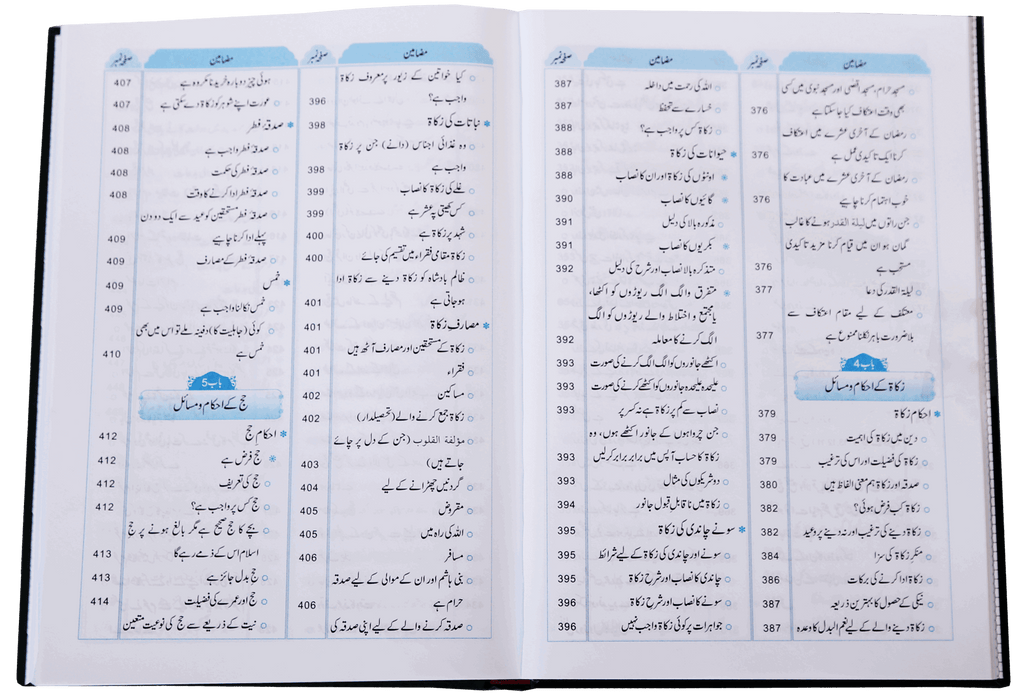 مضامین صفحہ نمبر
مسجد حرام، مسجد اقصیٰ اور مسجد نبوی میں کسی
بھی وقت اعتکاف کیا جا سکتا ہے 376
رمضان کے آخری عشرے میں اعتکاف
کرنا ایک تاکیدی عمل ہے 376
رمضان کے آخری عشرے میں عبادت کا
خوب اہتمام کرنا چاہیے 376
جن راتوں میں لیلۃ القدر ہونے کا غالب
گمان ہو ان میں قیام کرنا مزید تاکیدی
مستحب ہے 376
لیلۃ القدر کی دعا 377
معتکف کے لیے مقام اعتکاف سے
بلاضرورت باہر نکلنا ممنوع ہے 377
باب 4
زکاۃ کے احکام و مسائل
احکام زکاۃ 379
دین میں زکاۃ کی اہمیت 379
زکاۃ کی فضیلت اور اس کی ترغیب 379
صدقہ اور زکاۃ ہم معنی الفاظ ہیں 380
زکاۃ کب فرض ہوئی؟ 382
زکاۃ دینے کی ترغیب اور نہ دینے پر وعید 382
منکرِ زکاۃ کی سزا 384
زکاۃ ادا کرنے کی برکات 386
نیکی کے حصول کا بہترین ذریعہ 387
زکاۃ دینے والے کے لیے نعم البدل کا وعدہ 387
مضامین صفحہ نمبر
اللہ کی رحمت میں داخلہ 387
خسارے سے تحفظ 387
زکاۃ کس پر واجب ہے؟ 388
حیوانات کی زکاۃ 388
اونٹوں کی زکاۃ اور ان کا نصاب 388
گائیوں کا نصاب 390
مذکورہ بالا کی دلیل 391
بکریوں کا نصاب 391
متذکرہ بالا نصاب اور شرح کی دلیل 392
متفرق والگ الگ ریوڑوں کو اکٹھا،
یا مجتمع و اختلاط والے ریوڑوں کو الگ
الگ کرنے کا معاملہ 392
اکٹھے جانوروں کو الگ الگ کرنے کی صورت 393
علیحدہ علیحدہ جانوروں کو اکٹھے کرنے کی صورت 393
نصاب سے کم پر زکاۃ ہے نہ کسر پر 393
جن چرواہوں کے جانور اکٹھے ہوں، وہ
زکاۃ کا حساب آپس میں برابر برابر کر لیں 393
دو شریکوں کی مثال 393
زکاۃ میں ناقابل قبول جانور 394
سونے چاندی کی زکاۃ 395
سونے اور چاندی کی زکاۃ کے لیے شرائط 395
چاندی کا نصاب اور شرح زکاۃ 395
سونے کا نصاب اور شرح زکاۃ 396
جواہرات پر کوئی زکاۃ واجب نہیں 396
مضامین صفحہ نمبر
کیا خواتین کے زیور پر معروف زکاۃ
واجب ہے؟ 396
نباتات کی زکاۃ 398
وہ غذائی اجناس (دانے) جن پر زکاۃ
واجب ہے 398
غلے کی زکاۃ کا نصاب 399
کس کھیتی پہ عشر ہے 399
شہد پر زکاۃ ہے 400
زکاۃ مقامی فقراء میں تقسیم کی جائے 400
ظالم بادشاہ کو زکاۃ دینے سے زکاۃ ادا
ہو جاتی ہے 401
مصارف زکاۃ 401
زکاۃ کے مستحقین اور مصارف آٹھ ہیں 401
فقراء 401
مساکین 402
زکاۃ جمع کرنے والے (تحصیلدار) 402
مؤلفۃ القلوب (جن کے دل پر چائے
جاتے ہیں) 403
گردنیں چھڑانے کے لیے 404
مقروض 405
اللہ کی راہ میں 405
مسافر 406
بنی ہاشم اور ان کے موالی کے لیے صدقہ
حرام ہے 406
صدقہ کرنے والے کے لیے اپنی صدقہ کی
مضامین صفحہ نمبر
ہوئی چیز دوبارہ خریدنا مکروہ ہے 407
عورت اپنے شوہر کو زکاۃ دے سکتی ہے 407
صدقۂ فطر 408
صدقۂ فطر واجب ہے 408
صدقۂ فطر کی حکمت 408
صدقۂ فطر ادا کرنے کا وقت 408
صدقۂ فطر مستحقین کو عید سے ایک دو دن
پہلے ادا کرنا چاہیے 409
صدقۂ فطر کے مصارف 409
خمس 409
خمس نکالنا واجب ہے 409
کوئی (جاہلیت کا) دفینہ ملے تو اس میں بھی
خمس ہے 410
باب 5
حج کے احکام و مسائل
احکام حج 412
حج فرض ہے 412
حج کی تعریف 412
حج کس پر واجب ہے؟ 412
بچے کا حج صحیح ہے مگر بالغ ہونے پر حج
اسلام اس کے ذمے رہے گا 413
حج بدل جائز ہے 413
حج اور عمرے کی فضیلت 414
نیت کے ذریعے سے حج کی نوعیت متعین